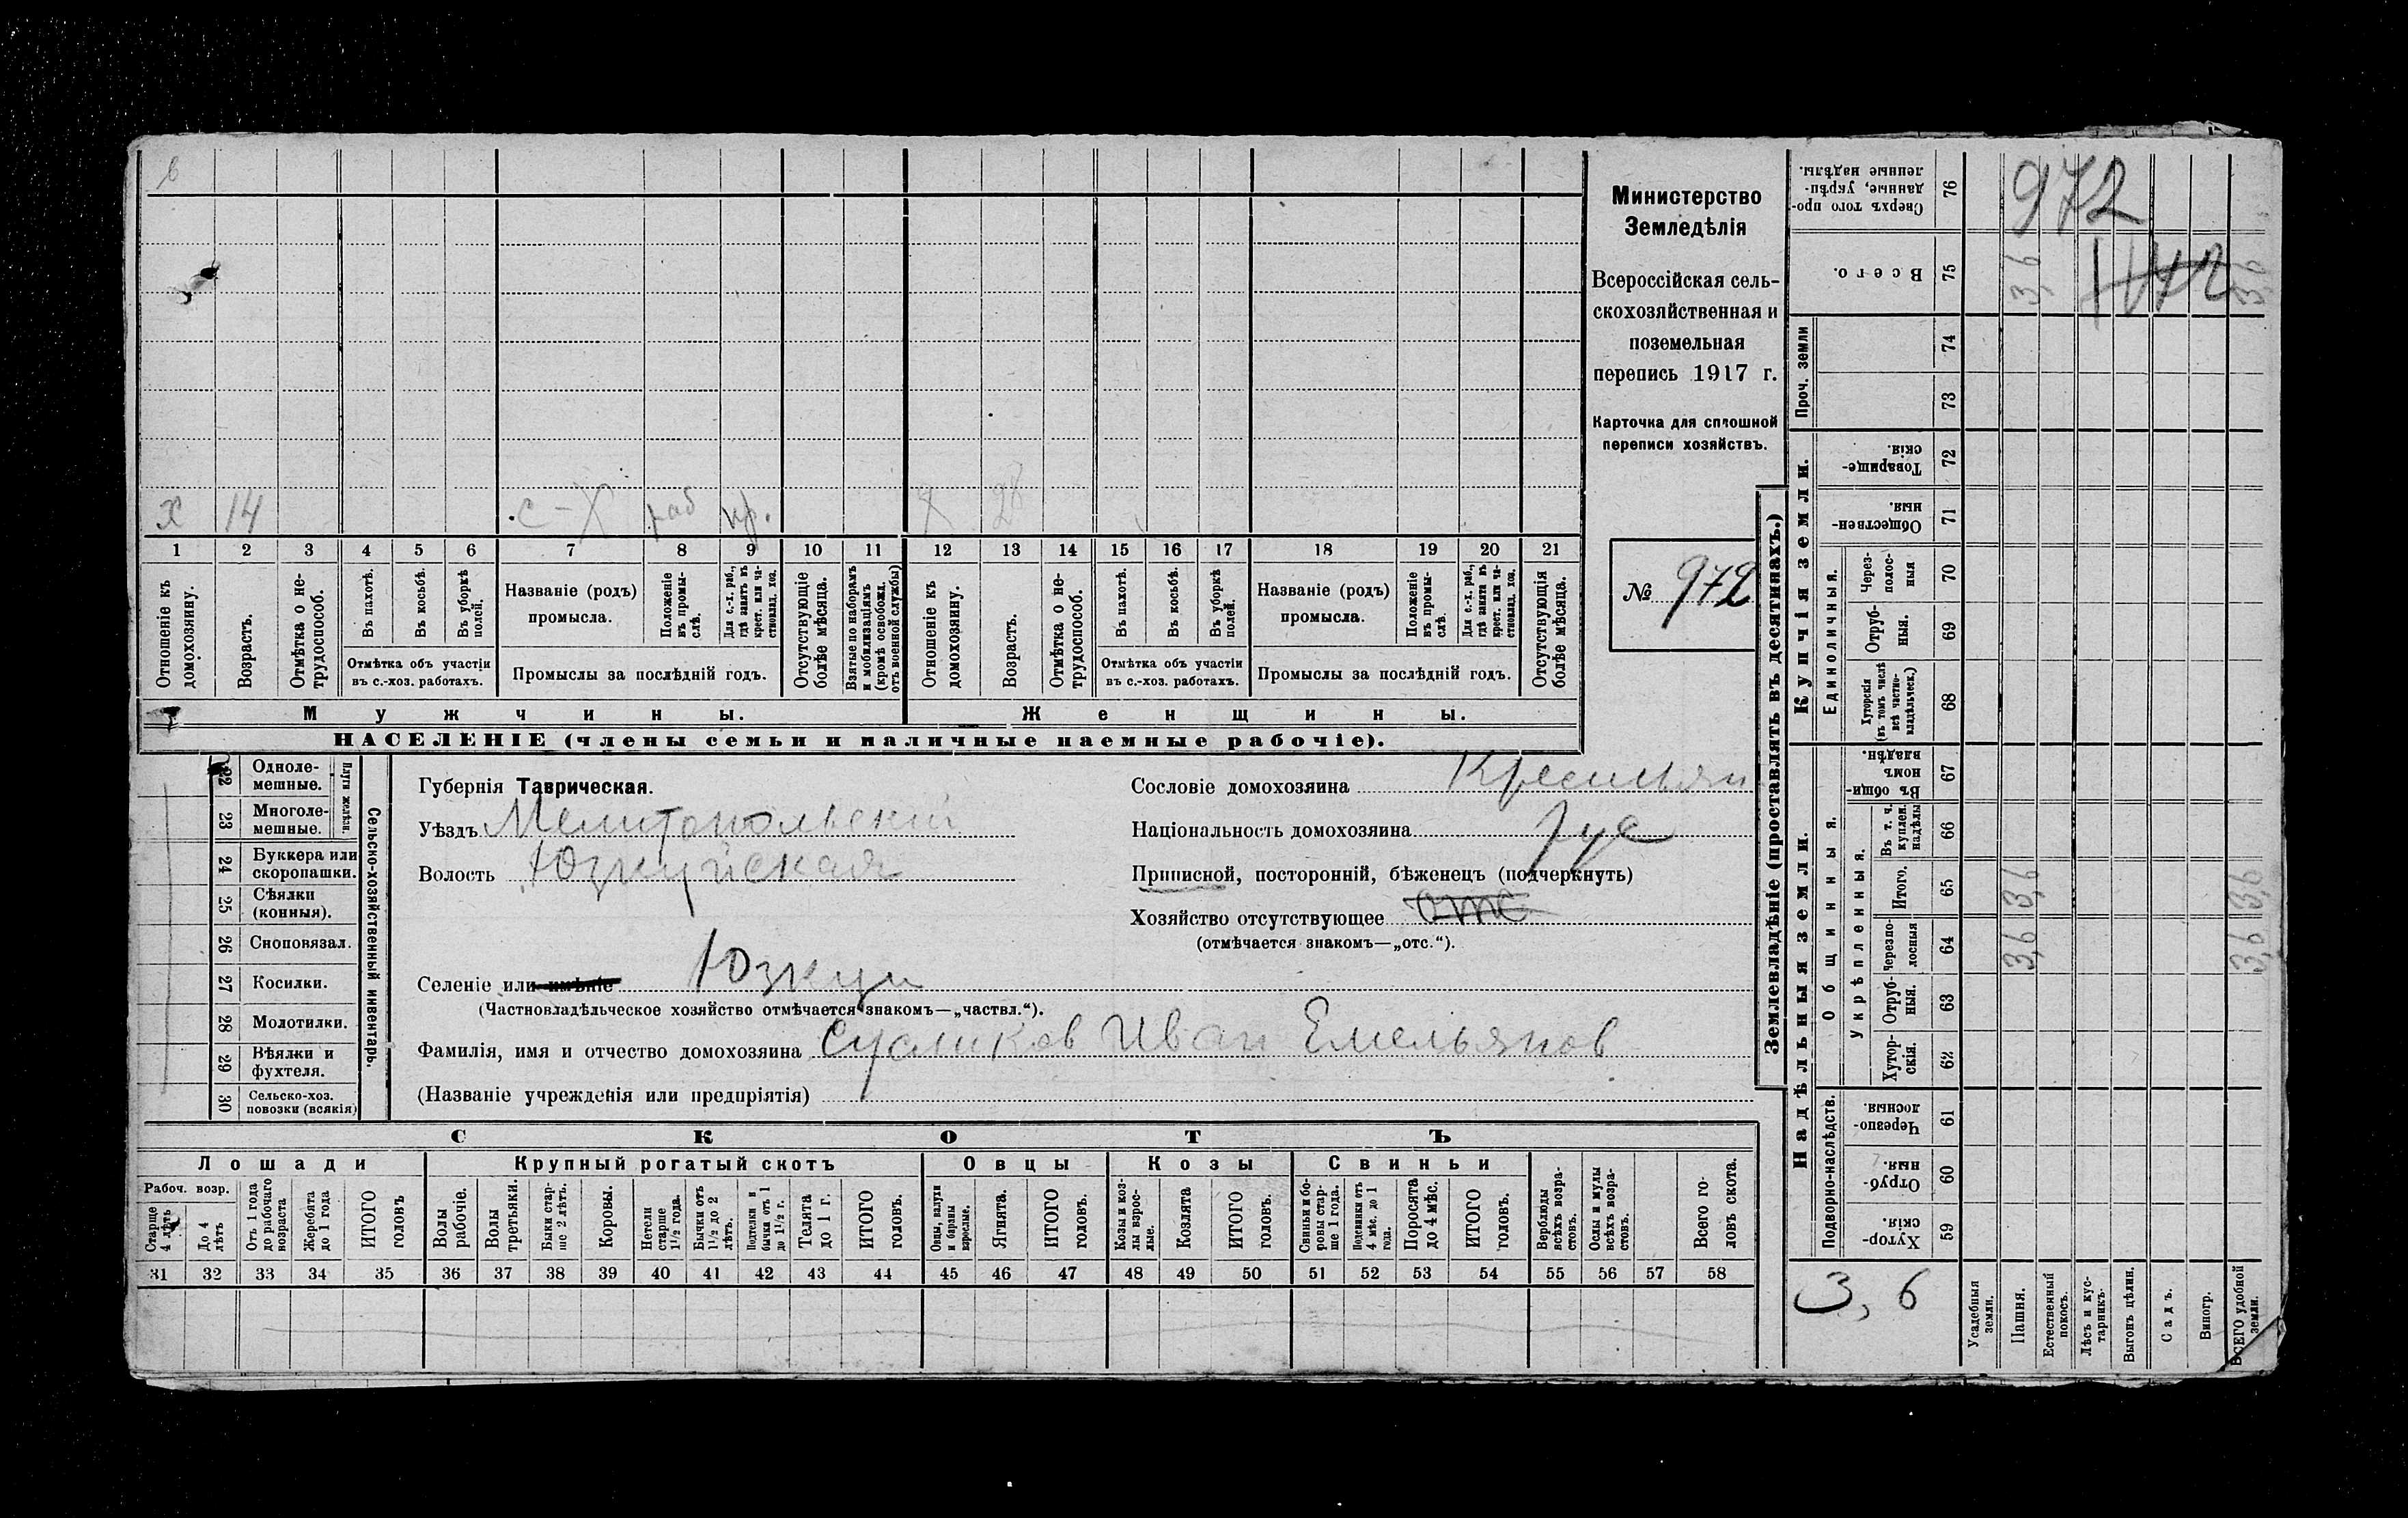 в
х 14 с-х раб кр. х 28
1 2 3 4 5 6 7 8 9 10 11 12 13 14 15 16 17 18 19 20 21
Отношеніе къ домохозяину.
Возрастъ.
Отмѣтка о не-
трудоспособ.
Въ пахотѣ.
Въ косьбѣ.
Въ уборкѣ
полей.
Отмѣтка объ участіи
въ с.-хоз. работахъ.
Названіе (родъ)
промысла.
Положеніе
въ промы-
слѣ.
Для с.-х. раб.,
гдѣ занятъ въ
крест. или ча-
стновлад. хоз.
Промыслы за послѣдній годъ.
Отсутствующіе
болѣе мѣсяца.
Взятые по наборамъ
и мобилизаціямъ
(кромѣ освобожд.
отъ военной службы)
Отношеніе къ
домохозяину.
Возрастъ.
Отмѣтка о не-
трудоспособ.
Въ пахотѣ.
Въ косьбѣ.
Въ уборкѣ
полей.
Отмѣтка объ участіи
въ с.-хоз. работахъ.
Названіе (родъ)
промысла.
Положеніе
въ промы-
слѣ.
Для с.-х. раб.,
гдѣ занята въ
крест. или ча-
стновлад. хоз.
Промыслы за послѣдній годъ.
Отсутствующія
болѣе мѣсяца.
Мужчины.
Женщины.
НАСЕЛЕНІЕ (члены семьи и наличные наемные рабочіе).
Министерство
Земледѣлія
Всероссійская сель-
скохозяйственная и
поземельная
перепись 1917 г.
Карточка для сплошной
переписи хозяйствъ.
№ 972
22 Одноле-
мешные.
23 Многоле-
мешные.
Плуги желѣзн.
24 Буккера или
скоропашки.
25 Сѣялки
(конныя).
26 Сноповязал.
27 Косилки.
28 Молотилки.
29 Вѣялки и
фухтеля.
30 Сельско-хоз.
повозки (всякія)
Сельско-хозяйственный инвентарь.
Губернія Таврическая.
Уѣздъ Мелитопольскій
Волость Юзкуйская
Селеніе или имѣніе Юзкуи
(Частновладѣльческое хозяйство отмѣчается знакомъ—„частвл.“).
Фамилія, имя и отчество домохозяина Сусликов Иван Емельянов
(Названіе учрежденія или предпріятія)
Сословіе домохозяина Крестьян
Національность домохозяина рус
Приписной, посторонній, бѣженецъ (подчеркнуть)
Хозяйство отсутствующее отс
(отмѣчается знакомъ—„отс.“).
СКОТЪ
Лошади
Крупный рогатый скотъ
Овцы
Козы
Свиньи
Рабоч. возр.
Старше
4 лѣтъ
До 4
лѣтъ
Отъ 1 года
до рабочаго
возраста
Жеребята
до 1 года
ИТОГО
головъ
Волы
рабочіе.
Волы
третьяки.
Быки стар-
ше 2 лѣтъ.
Коровы.
Нетели
старше
1½ года.
Бычки отъ
1½ до 2
лѣтъ.
Подтелки и
бычки отъ 1
до 1½ г.
Телята
до 1 г.
ИТОГО
головъ.
Овцы, валухи
и бараны
взрослые.
Ягнята.
ИТОГО
головъ.
Козы и коз-
лы взрос-
лые.
Козлята
ИТОГО
головъ.
Свиньи и бо-
ровы стар-
ше 1 года.
Подсвинки отъ
4 мѣс. до 1
года.
Поросята
до 4 мѣс.
ИТОГО
головъ.
Верблюды
всѣхъ возра-
стовъ.
Ослы и мулы
всѣхъ возра-
стовъ.
Всего го-
ловъ скота.
31 32 33 34 35 36 37 38 39 40 41 42 43 44 45 46 47 48 49 50 51 52 53 54 55 56 57 58
Землевладѣніе (проставлять въ десятинахъ.)
Сверхъ того про-
данные, укрѣп-
ленные надѣлы.
76
972
Всего.
75 3,6 3,6
1172
Проч. земли
74
73
Купчія земли.
Товарище-
скія.
72
Обществен-
ныя
71
Единоличныя.
Через-
полос-
ныя
70
Отруб-
ныя.
69
Хуторскія
(въ томъ числѣ
всѣ частно-
владѣльческ.)
68
Надѣльныя земли.
Общинныя.
Въ общи-
номъ
владѣн.
67
Укрѣпленныя.
Въ т. ч.
куплен.
надѣлы
66
Итого.
65 3,6 3,6
Черезпо-
лосныя
64 3,6 3,6
Отруб-
ныя.
63
Хутор-
скія.
62
Подворно-наслѣдств.
Черезпо-
лосныя
61
Отруб-
ныя.
60
Хутор-
скія.
59
3,6
Усадебныя
земли.
Пашня.
Естественный
покосъ.
Лѣсъ и кус-
тарникъ.
Выгонъ цѣлин.
Садъ.
Виногр.
ВСЕГО удобной
земли.